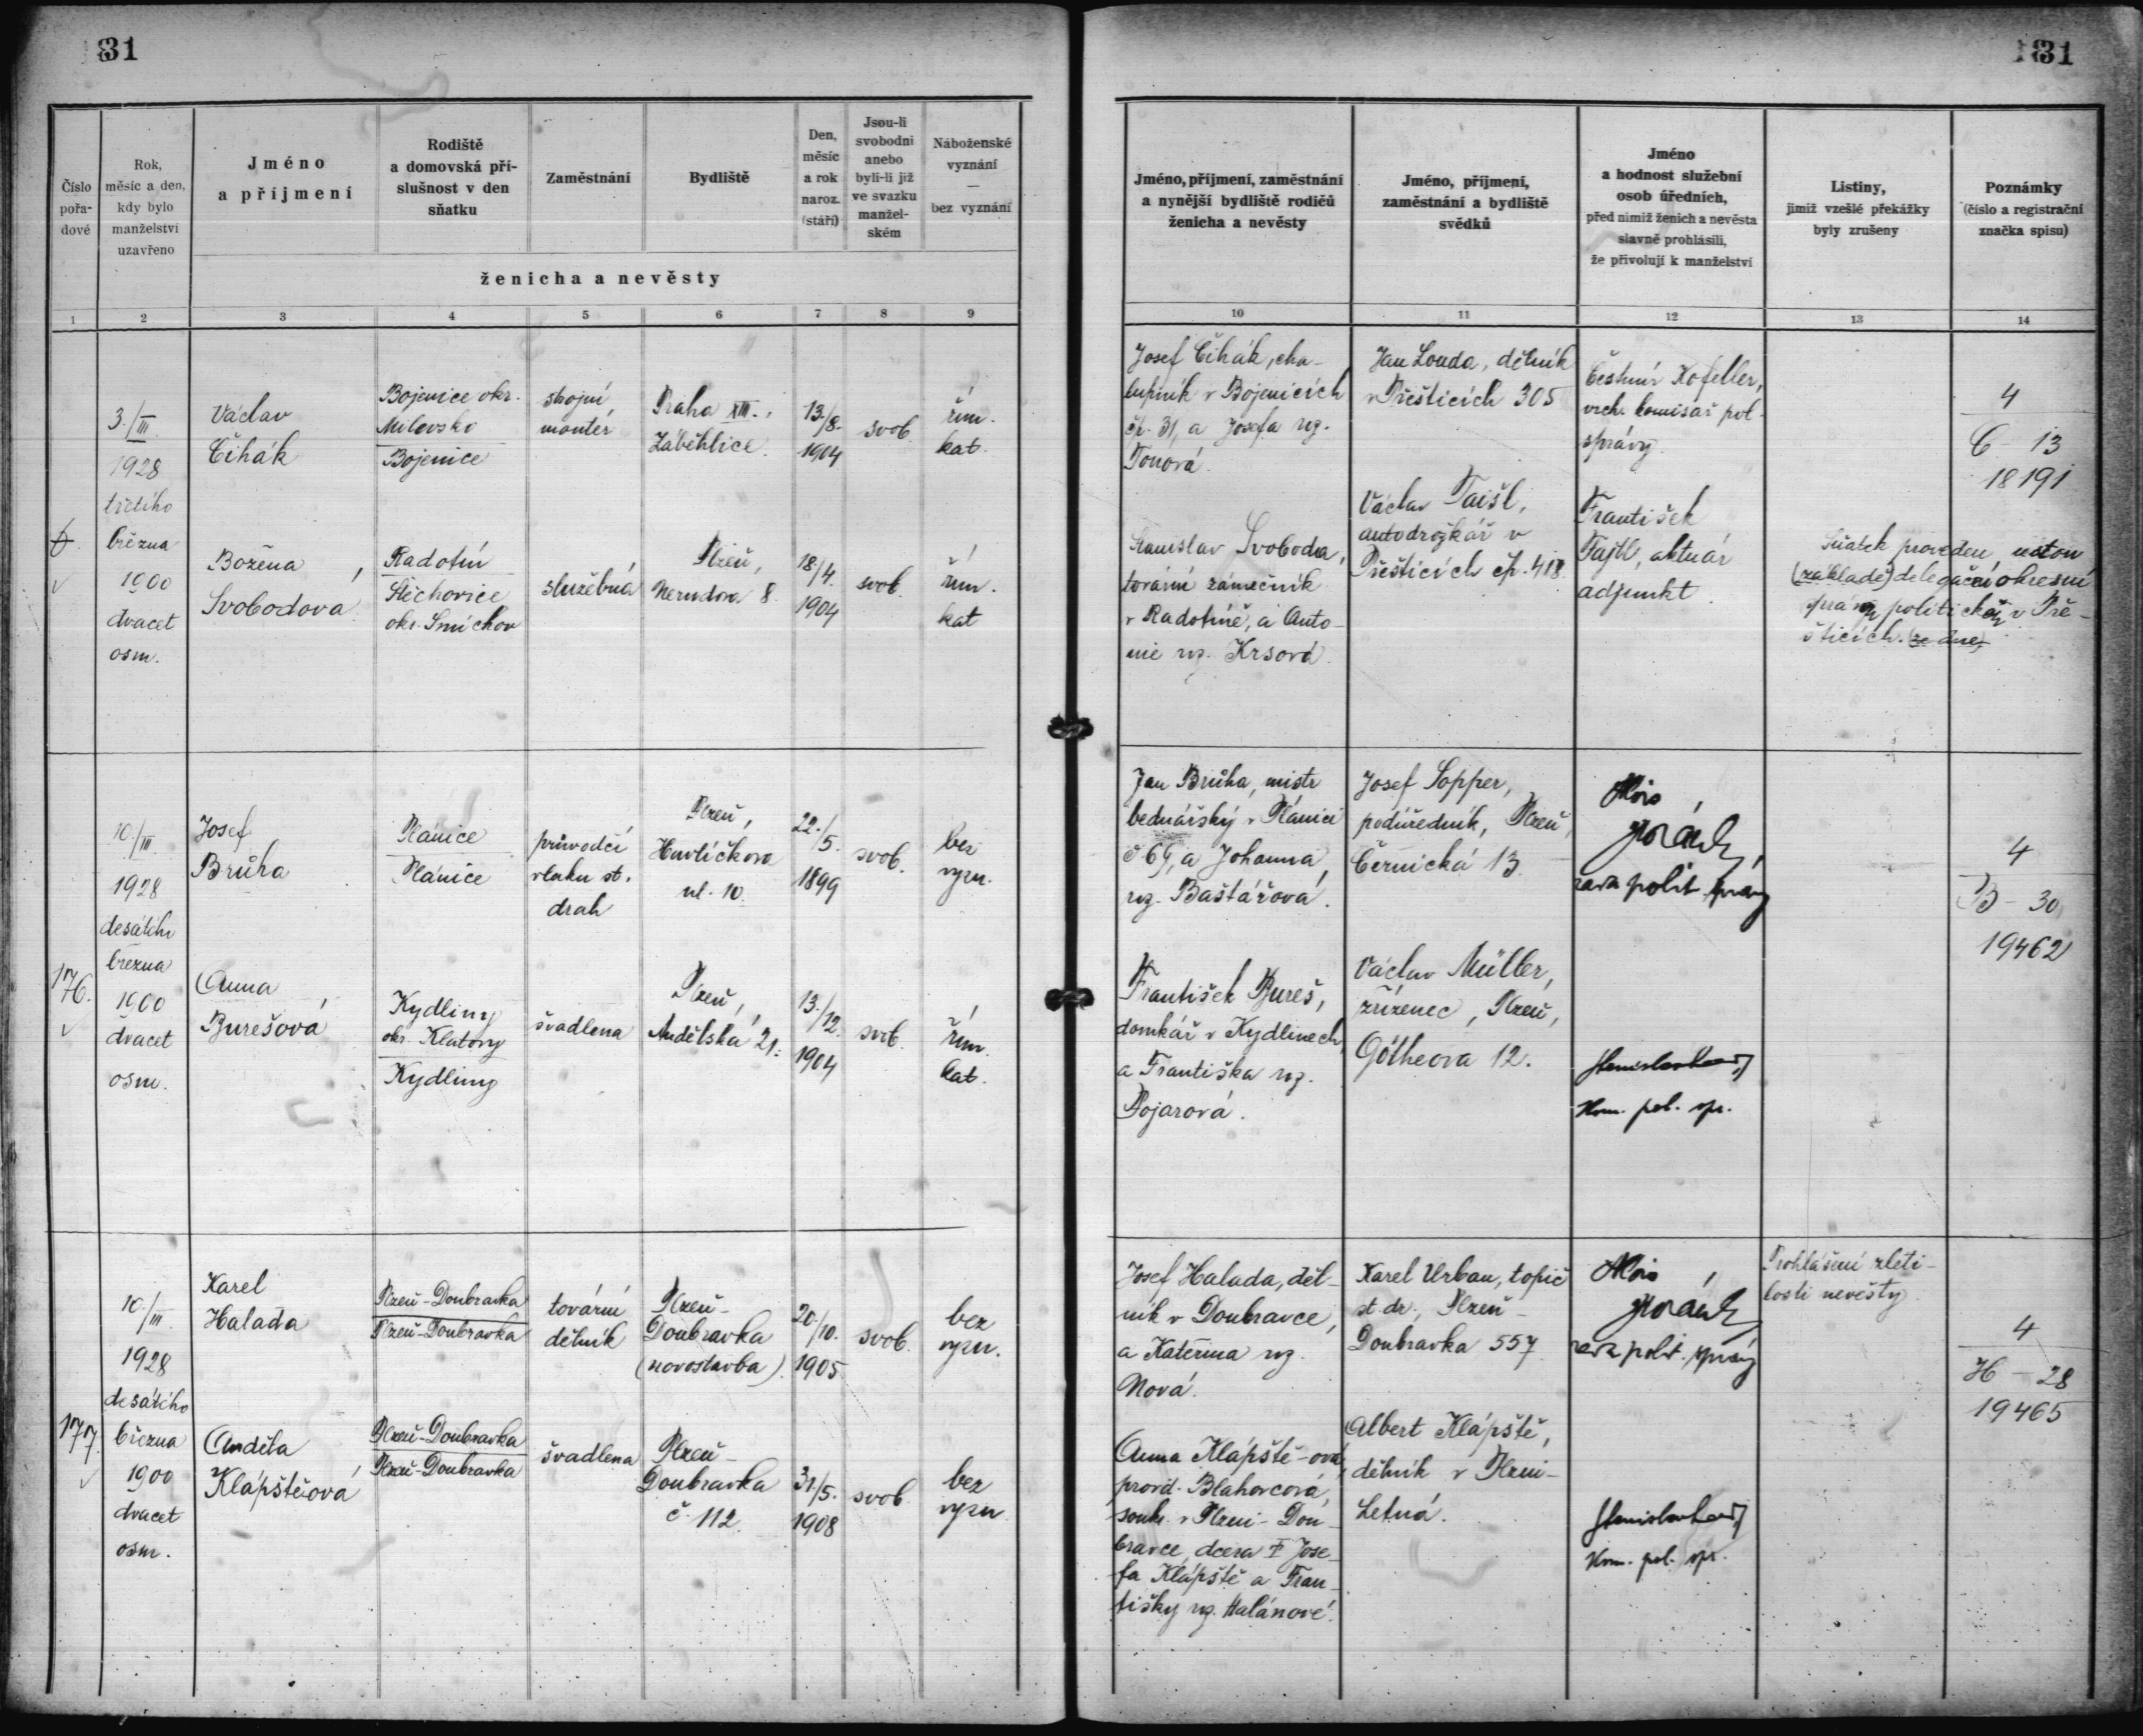 31
31
Číslo pořa-dové
Rok, měsíc a den, kdy bylo manželství uzavřeno
Jméno a příjmení
Rodiště a domovská pří-slušnost v den sňatku
Zaměstnání
Bydliště
Den, měsíc a rok naroz. (stáří)
Jsou-li svobodni anebo byli-li již ve svazku manžel-ském
Náboženské vyznání — bez vyznání
ženicha a nevěsty
1 2 3 4 5 6 7 8 9
Jméno, příjmení, zaměstnání a nynější bydliště rodičů ženicha a nevěsty
Jméno, příjmení, zaměstnání a bydliště svědků
Jméno a hodnost služební osob úředních, před nimiž ženich a nevěsta slavně prohlásili, že přivolují k manželství
Listiny, jimiž vzešlé překážky byly zrušeny
Poznámky (číslo a registrační značka spisu)
10 11 12 13 14
3./III.
1928
třetího
března
1900
dvacet
osm.
Václav
Čihák
Bojenice okr.
Milevsko
Bojenice
strojní
montér
Praha XIII.,
Záběhlice.
13./8.
1904
svob.
řím.
kat.
Božena
Svobodová
Radotín
Štěchovice
okr. Smíchov
služebná
Plzeň,
Nerudova 8.
18./4.
1904
svob.
řím.
kat
Josef Čihák, cha-
lupník v Bojenicích
čp. 31, a Josefa roz.
Tonová.
Stanislav Svoboda,
tovární zámečník
v Radotíně, a Anto-
nie roz. Krsová.
Jan Louda, dělník
v Přešticích 305
Václav Taišl,
autodrožkář v
Přešticích čp. 418.
Čestmír Kofeller,
vrch. komisař pol.
správy.
František
Fajtl, aktuár
adjunkt.
Sňatek proveden
(základě) delegační okresní
správy politické v Pře-
šticích. (ze dne)
4
C - 13
18191
176.
10./III.
1928
desátého
března
1900
dvacet
osm.
Josef
Brůha
Plánice
Plánice
průvodčí
vlaku st.
drah
Plzeň,
Havlíčkova
ul. 10.
22./5.
1899
svob.
bez
vyzn.
Anna
Burešová
Kydliny
okr. Klatovy
Kydliny
švadlena
Plzeň,
Andělská 21.
13./12.
1904
svob.
řím.
kat.
Jan Brůha, mistr
bednářský v Plánici
č 69, a Johanna,
roz. Baštářová.
František Bureš,
domkář v Kydlinech
a Františka roz.
Pojarová.
Josef Sopper,
podúředník, Plzeň,
Černická 13.
Václav Müller,
zřízenec, Plzeň,
Götheova 12.
Alois
Horák
rada polit. správy
Kom. pol. spr.
4
B - 30
19462
177.
10./III.
1928
desátého
března
1900
dvacet
osm.
Karel
Halada
Plzeň-Doubravka
Plzeň-Doubravka
tovární
dělník
Plzeň-
Doubravka
(novostavba).
20./10.
1905
svob.
bez
vyzn.
Anděla
Klápšťěová
Plzeň-Doubravka
Plzeň-Doubravka
švadlena
Plzeň-
Doubravka
č. 112.
31./5.
1908
svob.
bez
vyzn
Josef Halada, děl-
ník v Doubravce,
a Kateřina roz.
Nová.
Anna Klápště-ová,
provd. Blahovcová,
soukr. v Plzni-Dou-
bravce, dcera † Jose-
fa Klápště a Fran-
tišky roz. Halánové.
Karel Urban, topič
st. dr., Plzeň-
Doubravka 557
Albert Klápště,
dělník v Plzni-
Letná.
Alois
Horák
rada polit. správy
Kom. pol. spr.
Prohlášení zleti-
losti nevěsty.
4
H - 28
19465